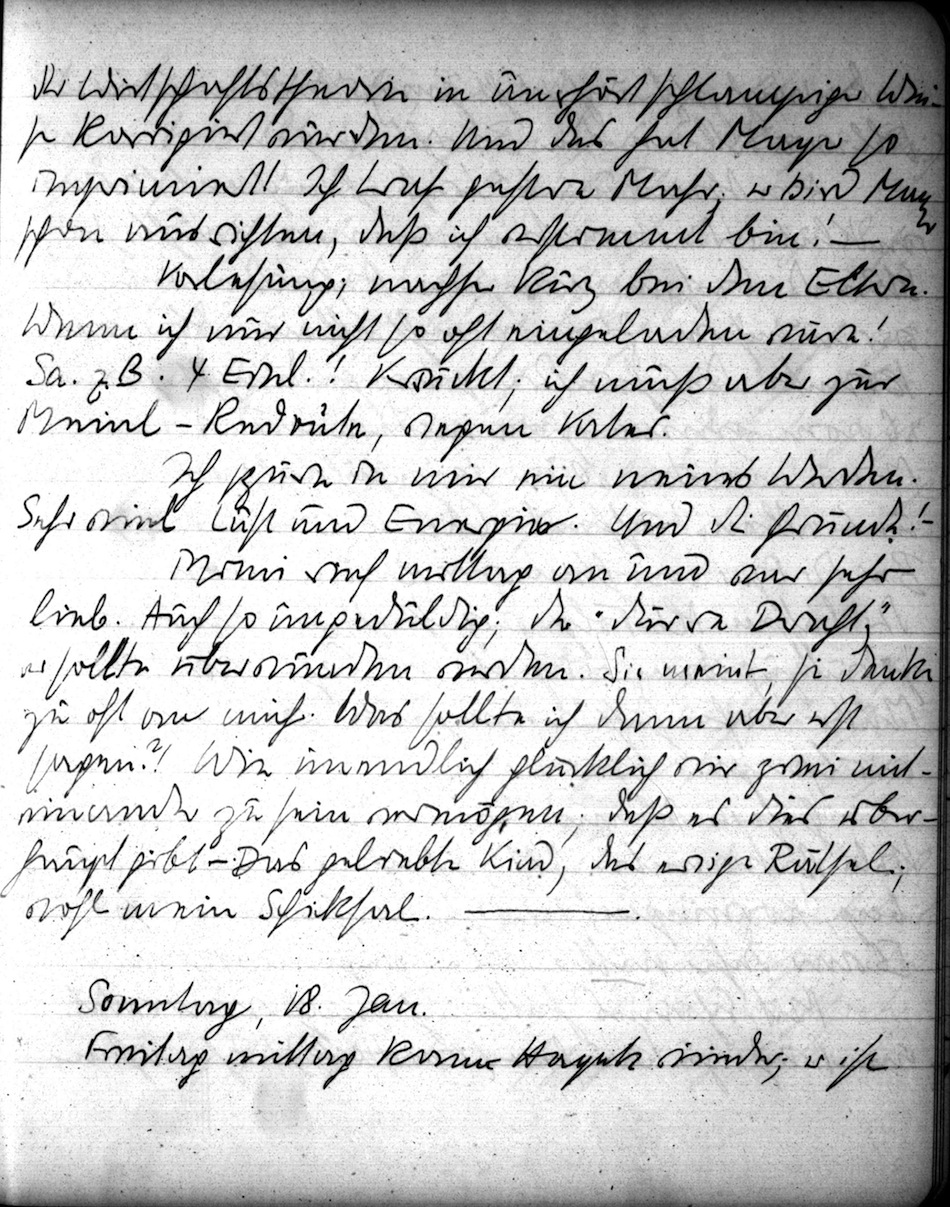 der Wirtschaftstheorie in unerhört schlampiger Wei-
se korrigiert wurden. Und das hat Mayer so
imprimiert! Ich traf gestern Mahr; er wird Mayer
schon ausrichten, daß ich verstimmt bin! —
Vorlesung; nachher kurz bei den Eltern.
Wenn ich nur nicht so oft eingeladen wäre!
Sa. z.B. 4 Einl.! Verrückt; ich muß aber zur
Meinl-Redoute, wegen
Ich spüre in mir ein neues Werden.
Sehr viel Lust und Energie. Und die Freunde!-
Mimi rief mittag an und war sehr
lieb. Auch so ungeduldig; der "dürre Draht",
er sollte überwunden werden. Sie meint, sie denke
zu oft an mich. Was sollte ich denn aber erst
sagen?! Wie unendlich glücklich wir zwei mit-
einander zu sein vermögen; daß es dies über-
haupt gibt – Das geliebte Kind, das ewige Rätsel;
wohl mein Schicksal. ———.
Sonntag, 18. Jan.
Freitag mittag kam Hayek wieder; er ist